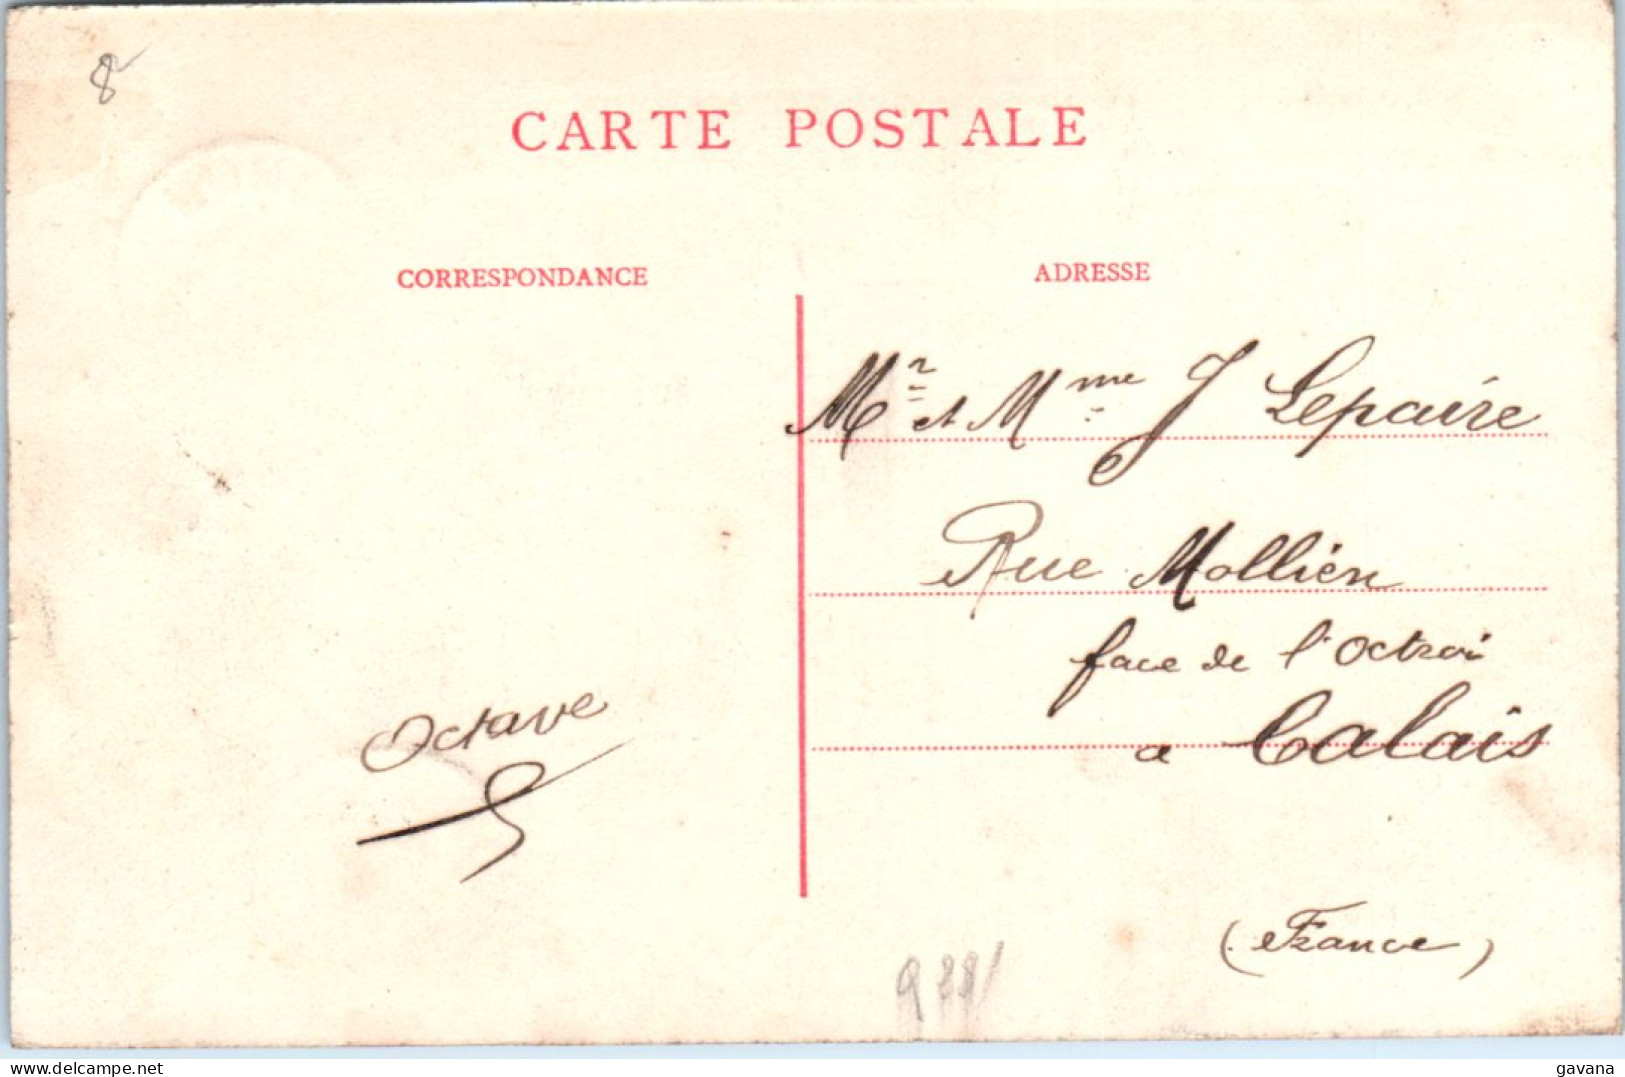 8
CARTE POSTALE
CORRESPONDANCE
ADRESSE
Mr et Mme J Lepaire
Rue Mollien
face de l'Octroi
a Calais
Octave
(France)
delcampe.net
gavana